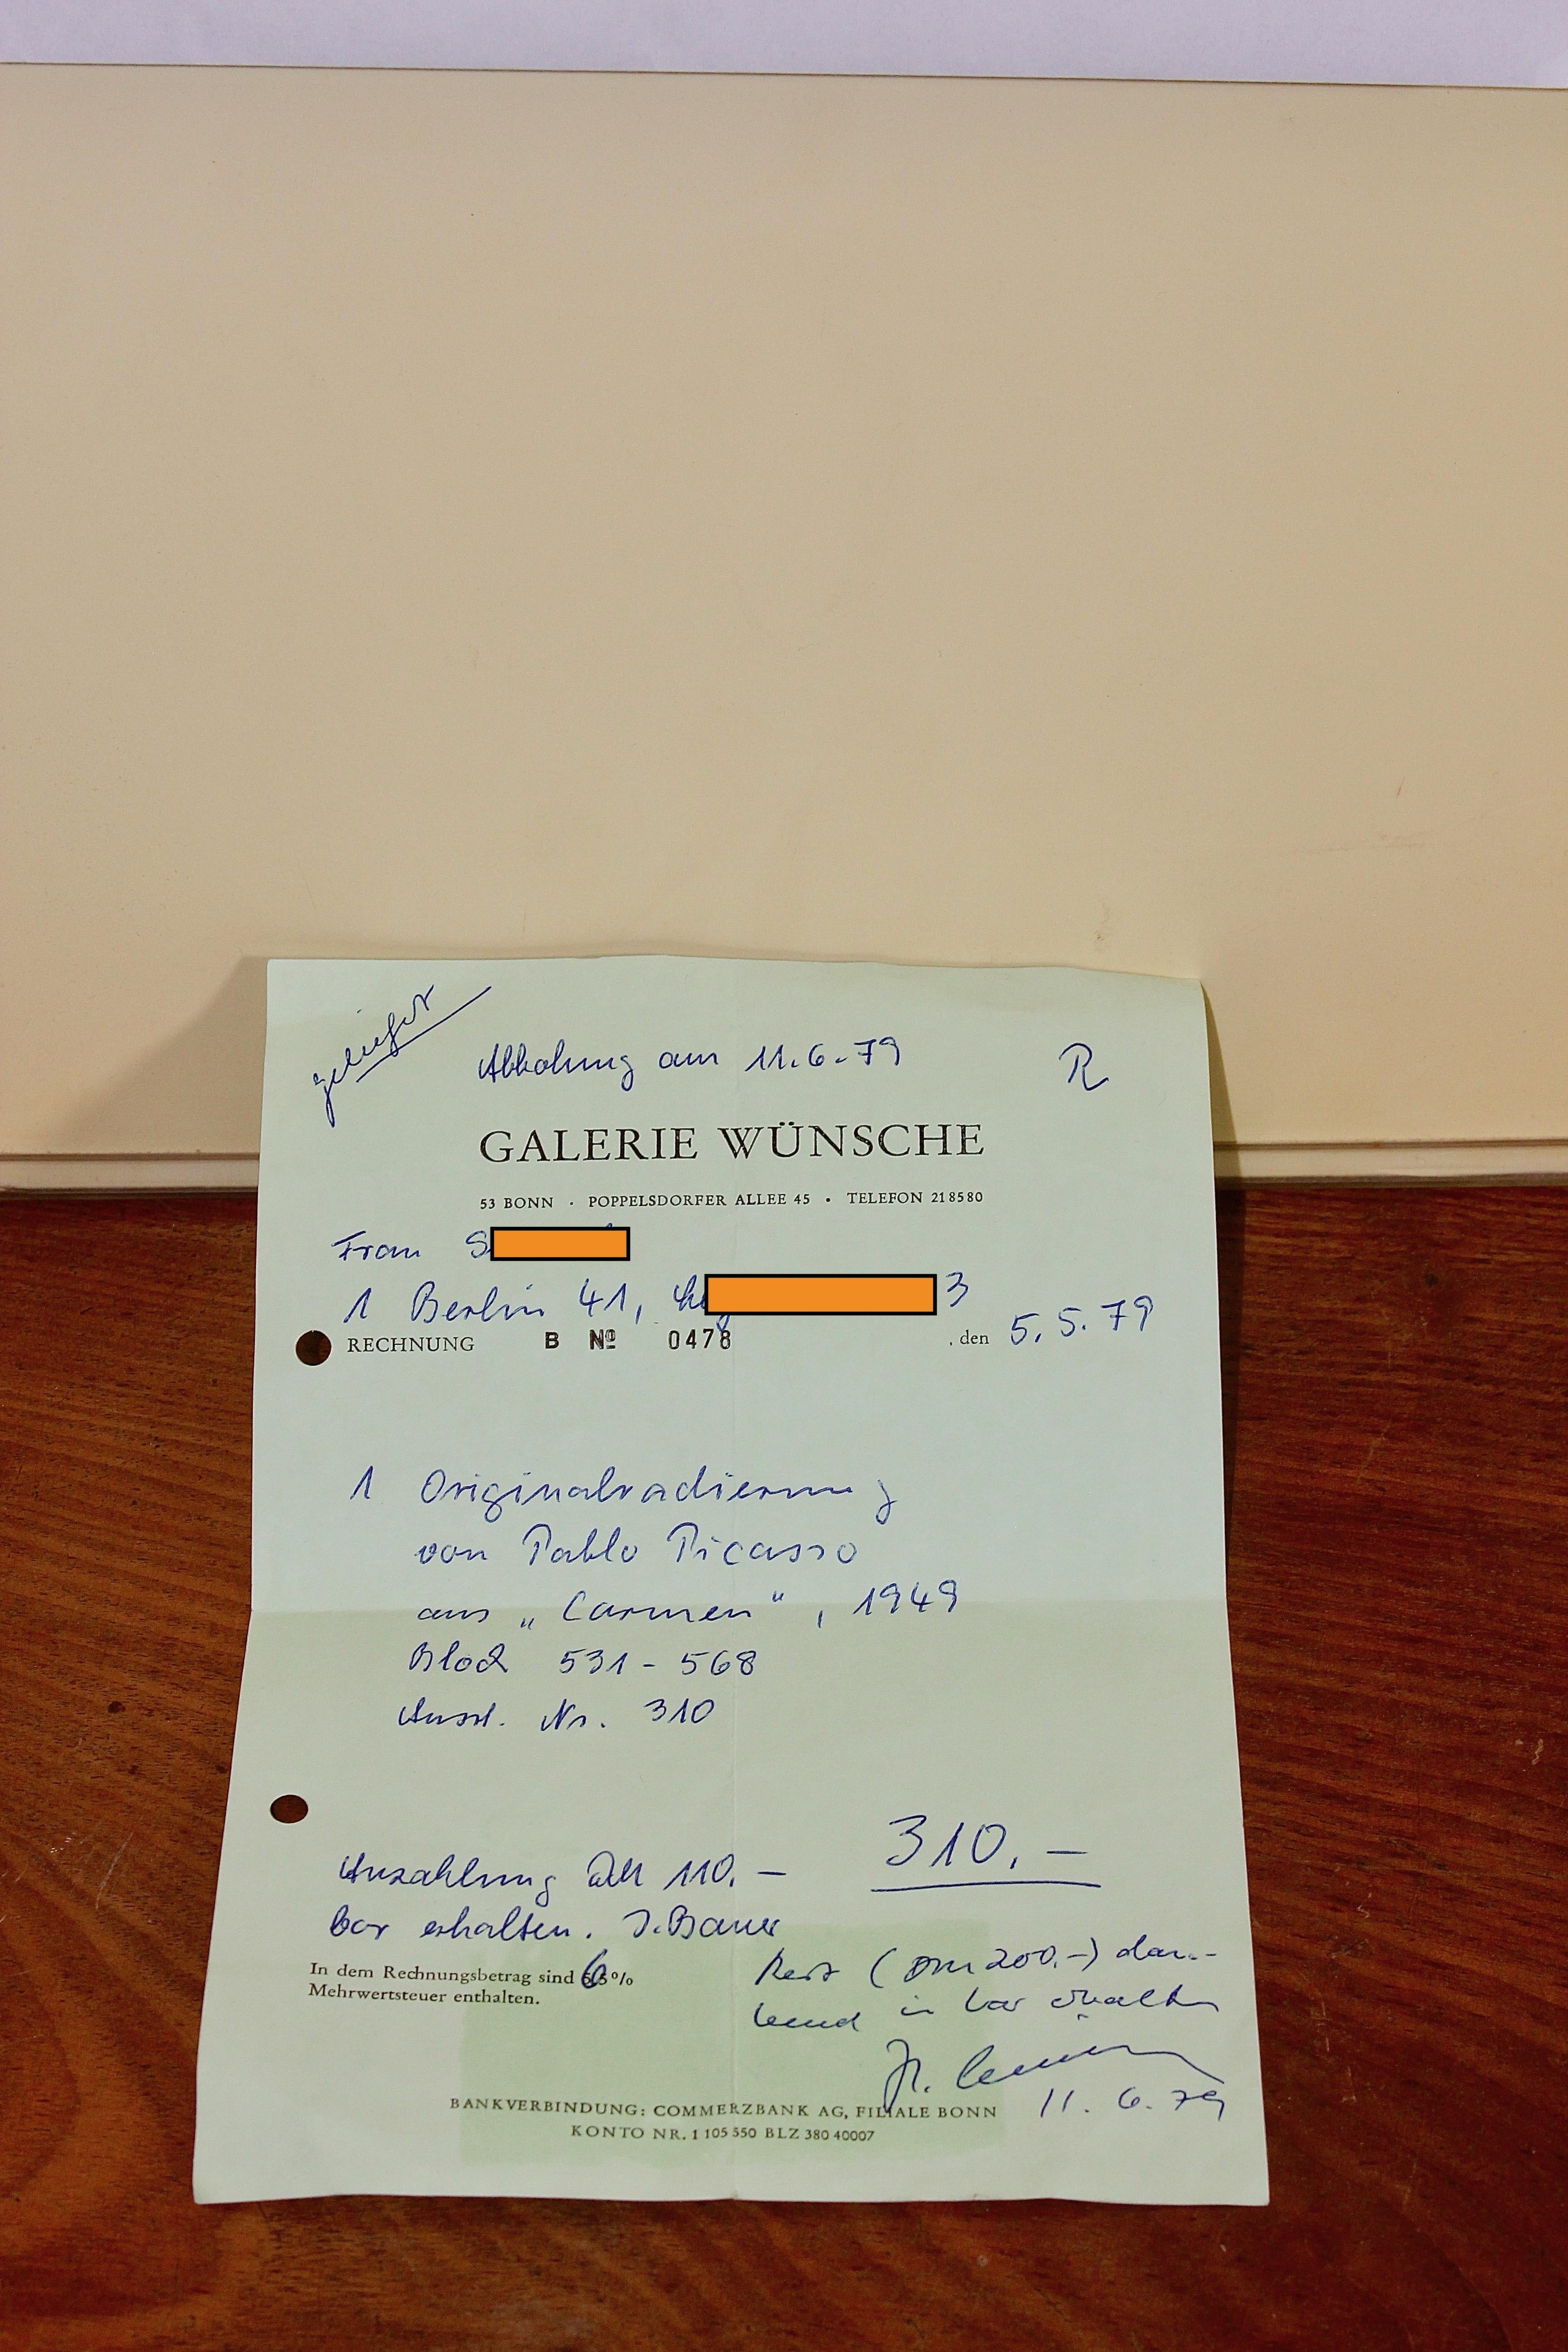 geliefert
Abholung am 11.6.79 R
GALERIE WÜNSCHE
53 BONN · POPPELSDORFER ALLEE 45 • TELEFON 218580
Frau S
1 Berlin 41, 3
RECHNUNG B Nº 0478 , den 5.5.79
1 Originalradierung
von Pablo Picasso
aus „Carmen", 1949
Bloch 531 - 568
Ausst. Nr. 310
310.—
Anzahlung DM 110.—
bar erhalten. J. Bauer
In dem Rechnungsbetrag sind 6%
Mehrwertsteuer enthalten.
Rest (DM 200.-) dan-
kend in bar erhalten
11.6.79
BANKVERBINDUNG: COMMERZBANK AG, FILIALE BONN
KONTO NR. 1 105 550 BLZ 380 40007